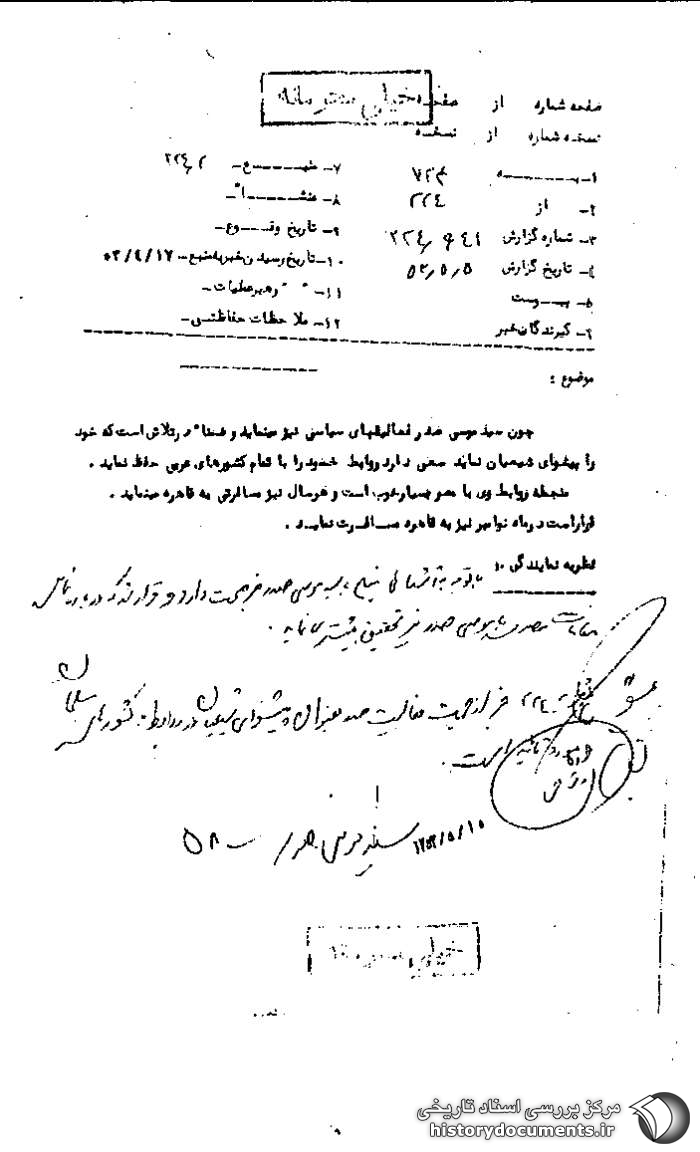 خیلی محرمانه
صفحه شماره از صفحه
نسخه شماره از نسخه
۱- به ۷۲۳
۲- از ۲۲٤
۳- شماره گزارش
٤- تاریخ گزارش ۵۲/۵/۵
۵- پیوست
۶- گیرندگان خبر
۷- منبع-
۸- منشأ-
۹- تاریخ وقوع-
۱۰- تاریخ رسیدن خبر به منبع- ۵۲/٤/۱۷
۱۱- رهبر عملیات-
۱۲- ملاحظات حفاظتی-
موضوع :
چون سید موسی صدر فعالیتهای سیاسی نیز مینماید و ضمناً در تلاش است که خود
را پیشوای شیعیان نماید سعی دارد روابط خود را با تمام کشورهای عربی حفظ نماید .
منجمله روابط وی با مصر بسیار خوب است و هر سال نیز مسافرتی به قاهره مینماید .
قرار است در ماه نوامبر نیز به قاهره مسافرت نماید .
نظریه نمایندگی
با توجه به منبع با سید موسی صدر دارد و قرار در مورد تماس
مقامات مصری با موسی صدر نیز تحقیق بیشتری نماید .
خبر از جهت فعالیت صدر بعنوان پیشوای شیعیان در رابطه با کشورهای مسلمان
مورد تأیید است .
سید موسی صدر
خیلی محرمانه
مرکز بررسی اسناد تاریخی
historydocuments.ir